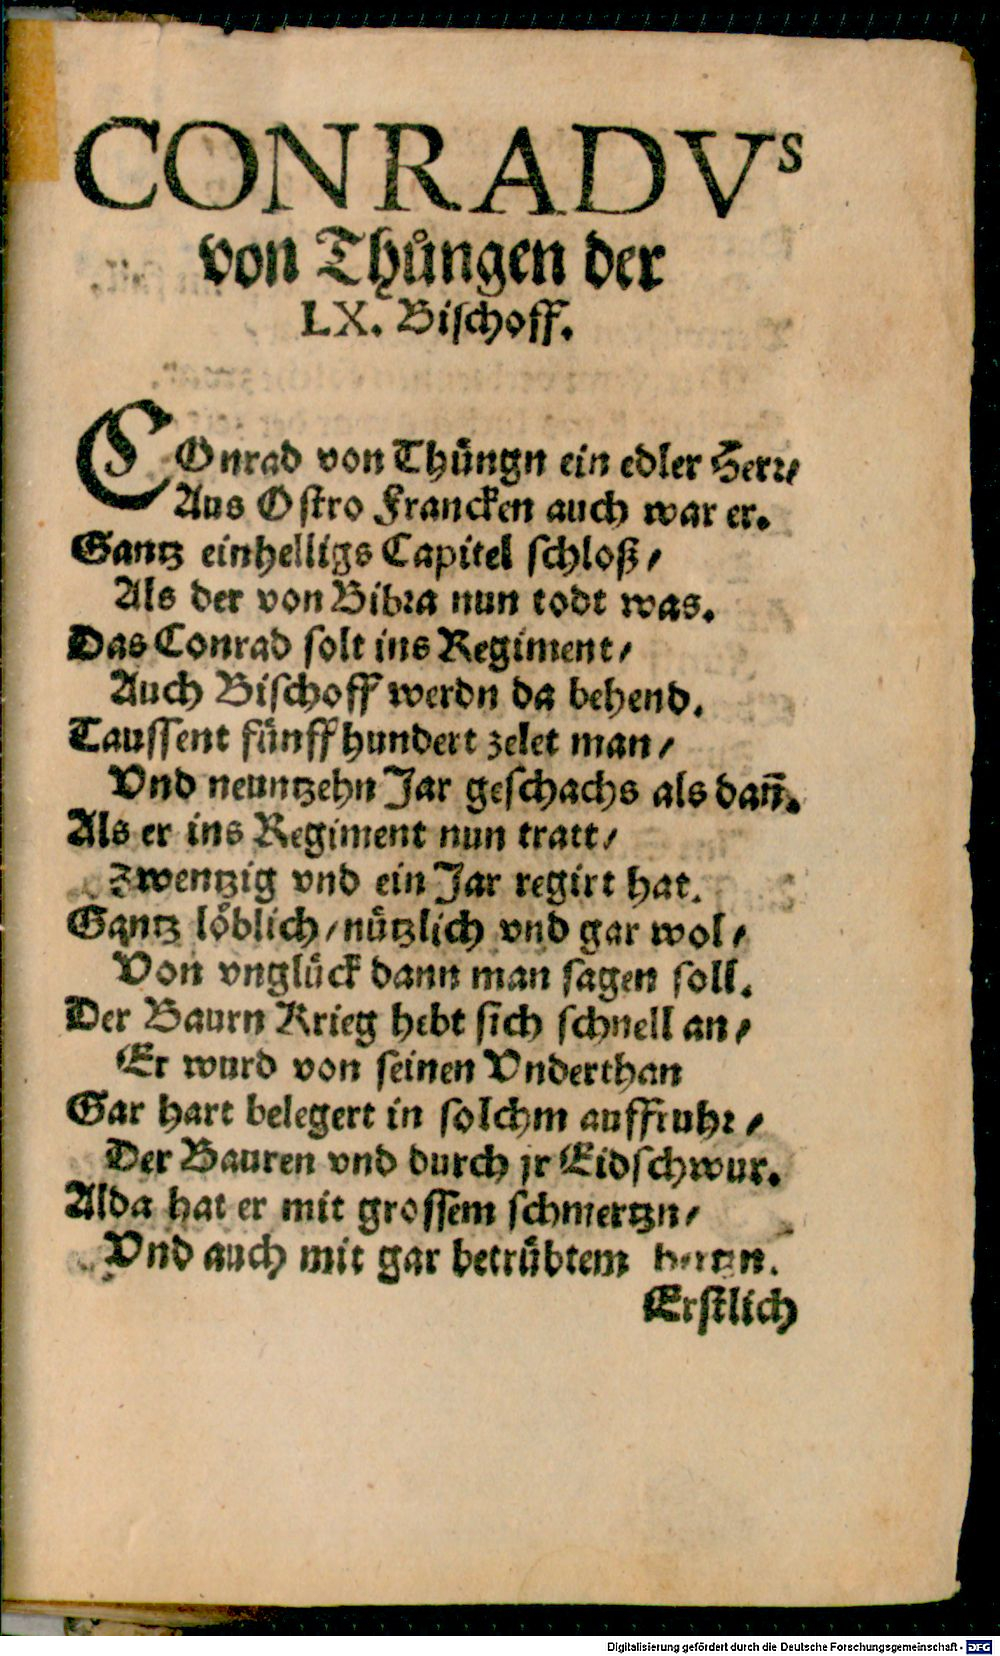 CONRADVs
von Thůngen der
LX. Bischoff.
COnrad von Thüngn ein edler Herr/
Aus Ostro Francken auch war er.
Gantz einhelligs Capitel schloß/
Als der von Bibra nun todt was.
Das Conrad solt ins Regiment/
Auch Bischoff werdn da behend.
Taussent fünff hundert zelet man/
Vnd neuntzehn Jar geschachs als dañ.
Als er ins Regiment nun tratt/
Zwentzig vnd ein Jar regirt hat.
Gantz löblich/nützlich vnd gar wol/
Von vnglück dann man sagen soll.
Der Baurn Krieg hebt sich schnell an/
Er wurd von seinen Vnderthan
Gar hart belegert in solchm auffruhr/
Der Bauren vnd durch jr Eidschwur.
Alda hat er mit grossem schmertzn/
Vnd auch mit gar betrübtem hertzn.
Erstlich
Digitalisierung gefördert durch die Deutsche Forschungsgemeinschaft - DFG